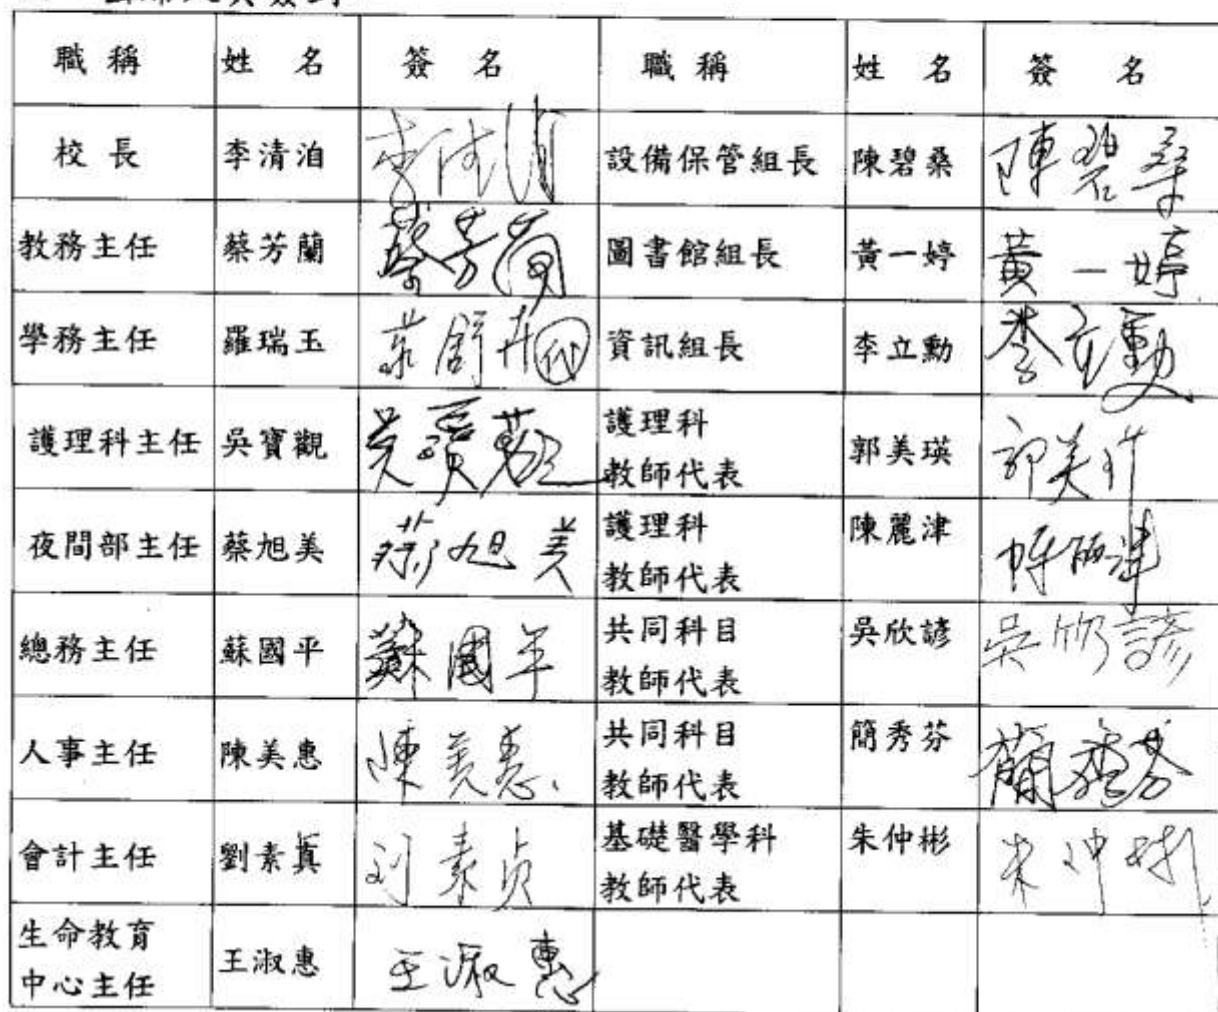 職稱 姓名 簽名 職稱 姓名 簽名
校長 李清泊 設備保管組長 陳碧桑 陳碧桑
教務主任 蔡芳蘭 蔡芳蘭 圖書館組長 黃一婷 黃一婷
學務主任 羅瑞玉 代 資訊組長 李立勳 李立勳
護理科主任 吳寶觀 吳寶觀 護理科
教師代表 郭美瑛 郭美瑛
夜間部主任 蔡旭美 蔡旭美 護理科
教師代表 陳麗津 陳麗津
總務主任 蘇國平 蘇國平 共同科目
教師代表 吳欣諺 吳欣諺
人事主任 陳美惠 陳美惠 共同科目
教師代表 簡秀芬 簡秀芬
會計主任 劉素真 刘素貞 基礎醫學科
教師代表 朱仲彬 朱仲彬
生命教育
中心主任 王淑惠 王淑惠